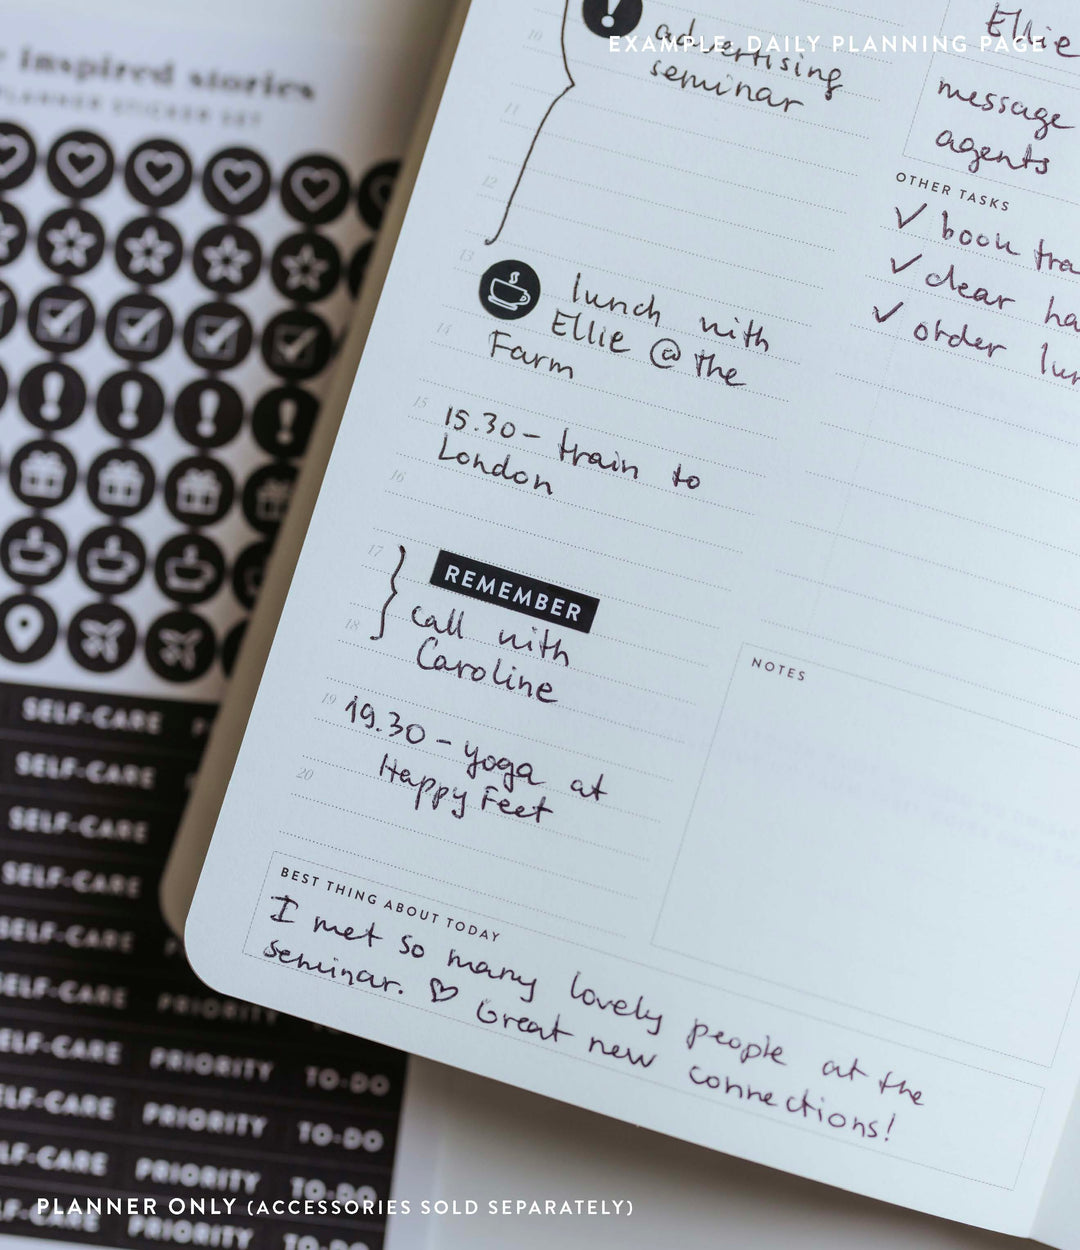 EXAMPLE DAILY PLANNING PAGE
inspired stories
PLANNER STICKER SET
SELF-CARE
SELF-CARE
SELF-CARE
SELF-CARE
SELF-CARE
SELF-CARE PRIORITY
SELF-CARE PRIORITY TO-DO
SELF-CARE PRIORITY TO-DO
SELF-CARE PRIORITY TO-DO
SELF-CARE PRIORITY TO-DO
10
advertising
seminar
11
12
13
lunch with
Ellie @ the
14
Farm
15
15.30 – train to
London
16
17
REMEMBER
call with
18
Caroline
19
19.30 – yoga at
Happy Feet
20
BEST THING ABOUT TODAY
I met so many lovely people at the
seminar. ♡ Great new connections!
Ellie
message
agents
OTHER TASKS
✓ book tra
✓ clear ha
✓ order lun
NOTES
PLANNER ONLY (ACCESSORIES SOLD SEPARATELY)